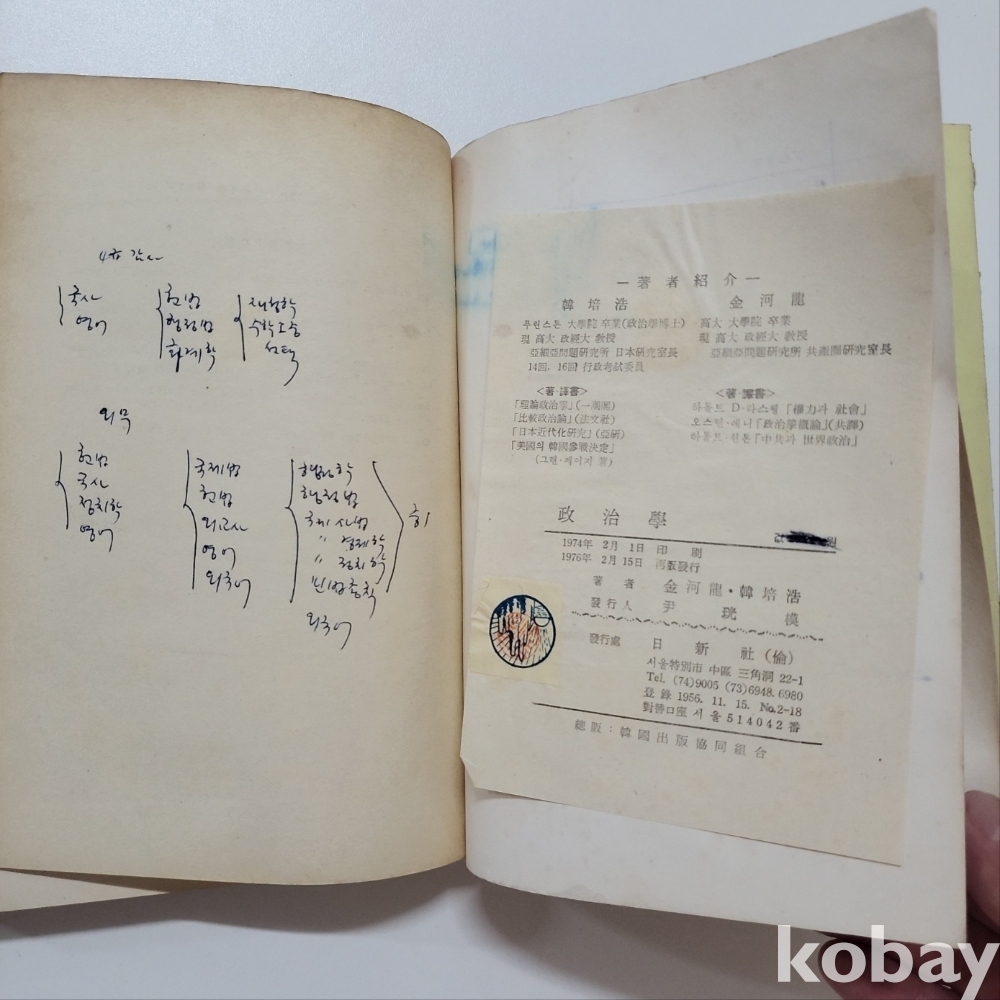 4급 감사
국사
영어
헌법
행정법
회계학
재정학
수학 中
선택
외무
헌법
국사
정치학
영어
국제법
헌법
외교사
영어
외국어
행정학
행정법
국제사법
〃 경제학
〃 정치학
민법총칙
외국어
—著者紹介—
韓培浩
프린스톤 大學院 卒業(政治學博士)
現 高大 政經大 敎授
亞細亞問題硏究所 日本硏究室長
14回, 16回 行政考試委員
<著·譯書>
「理論政治學」(一潮閣)
「比較政治論」(法文社)
「日本近代化硏究」(亞硏)
「美國의 韓國參戰決定」
(그렌·페이지 著)
金河龍
高大 大學院 卒業
現 高大 政經大 敎授
亞細亞問題硏究所 共產圈硏究室長
<著·譯書>
하롤드 D·라스웰 「權力과 社會」
오스틴·레니 「政治學槪論」(共譯)
하롤드·힌톤 「中共과 世界政治」
政治學
1974年 2月 1日 印刷
1976年 2月 15日 再版發行
著者 金河龍·韓培浩
發行人 尹珖模
發行處 日新社(倫)
서울特別市 中區 三角洞 22-1
Tel. (74)9005 (73)6948.6980
登錄 1956. 11. 15. No.2-18
對替口座 서울514042番
總販:韓國出版協同組合
kobay